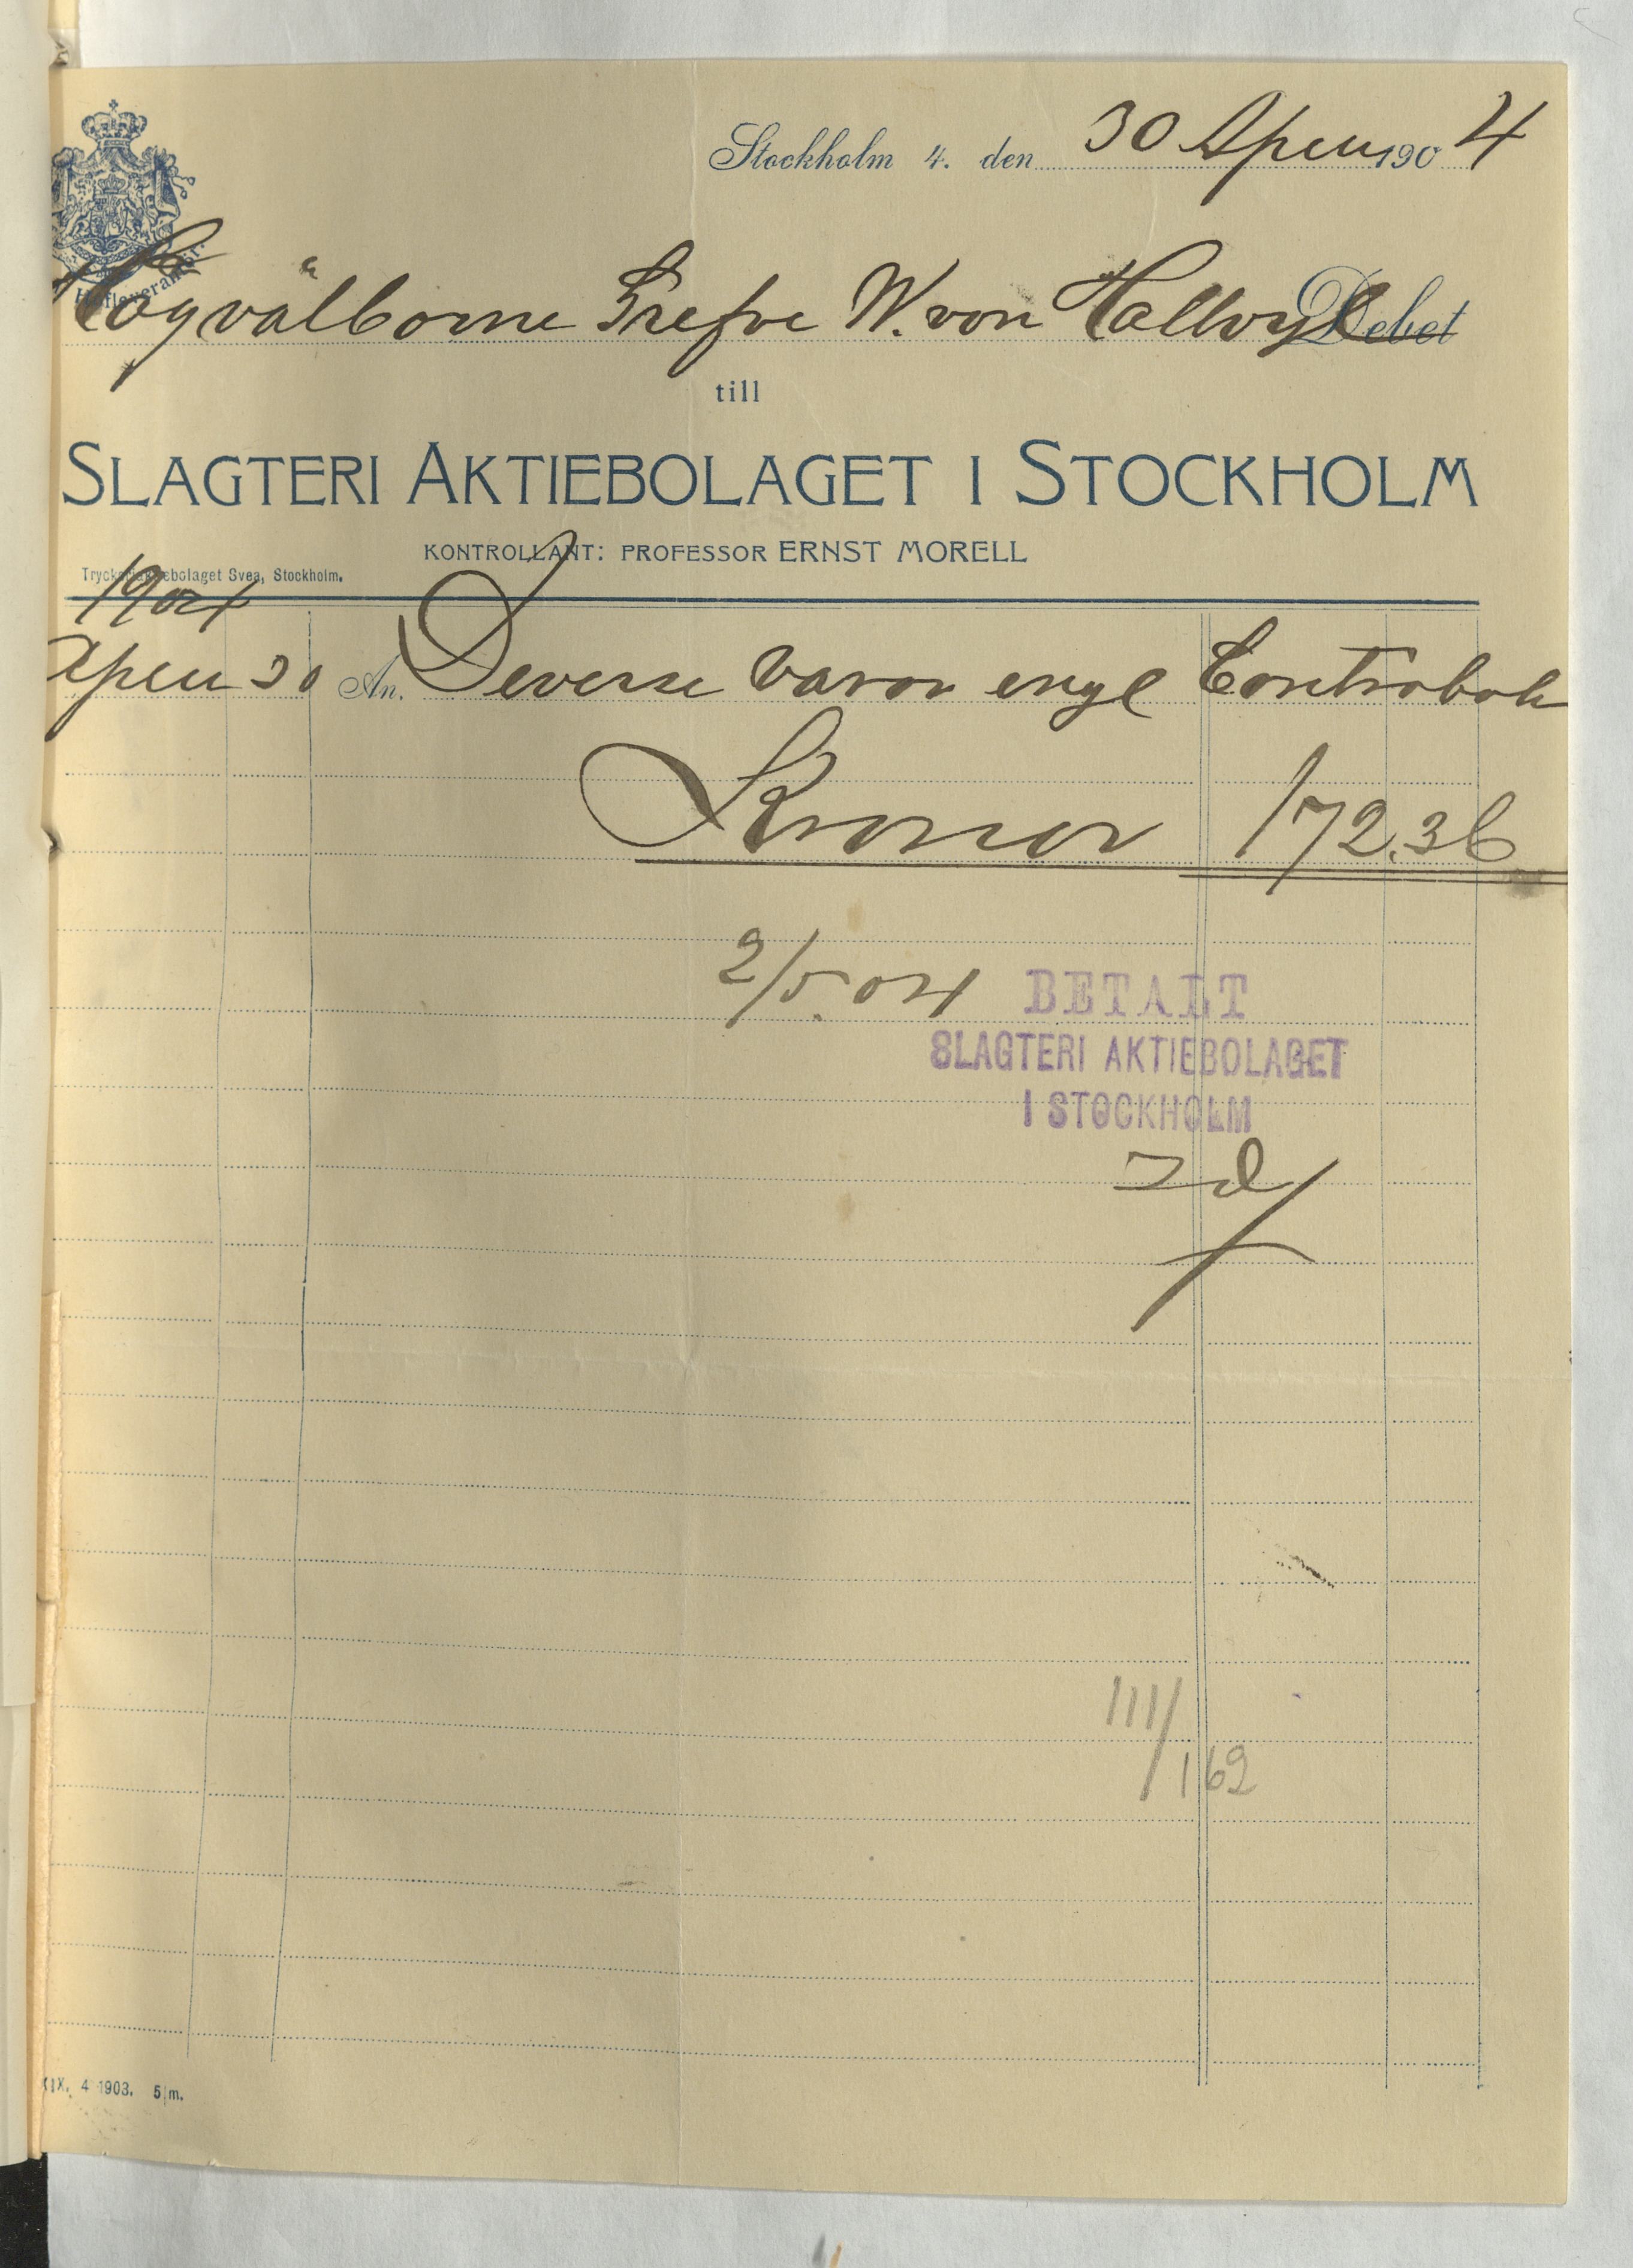 Stockholm 4. den 30 April 1904
Hofleverantör.
Högvälborne Grefve W. von Hallwyl Debet
till
SLAGTERI AKTIEBOLAGET I STOCKHOLM
KONTROLLANT: PROFESSOR ERNST MORELL
Tryckeriaktiebolaget Svea, Stockholm.
1904
April 30 An. Diverse varor engl Contrabok
Kronor 172.36
2/5.04 BETALT
SLAGTERI AKTIEBOLAGET
I STOCKHOLM
111/162
XIX. 4 1903. 5 m.